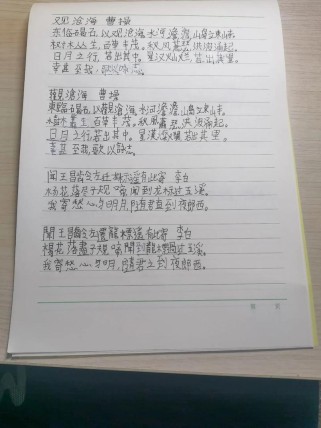 观沧海 曹操
东临碣石,以观沧海。水河澹澹,山岛立东山寺。
树木丛生,百草丰茂。秋风萧瑟,洪波涌起。
日月之行,若出其中。星汉灿烂,若出其里。
幸甚至哉,歌以咏志。
觀滄海 曹操
東臨碣石,以觀滄海。水河澹澹,山島立東山寺。
樹木叢生,百草丰茂。秋風蕭瑟,洪波涌起。
日月之行,若出其中。星漢燦爛,若出其里。
幸甚至哉,歌以詠志。
闻王昌龄左迁龙标遥有此寄 李白
杨花落尽子规啼,闻到龙标过五溪。
我寄愁心与明月,随君直到夜郎西。
聞王昌齡左遷龍標遥有此寄 李白
楊花落盡子規啼,聞到龍標過五溪。
我寄愁心与明月,隨君直到夜郎西。